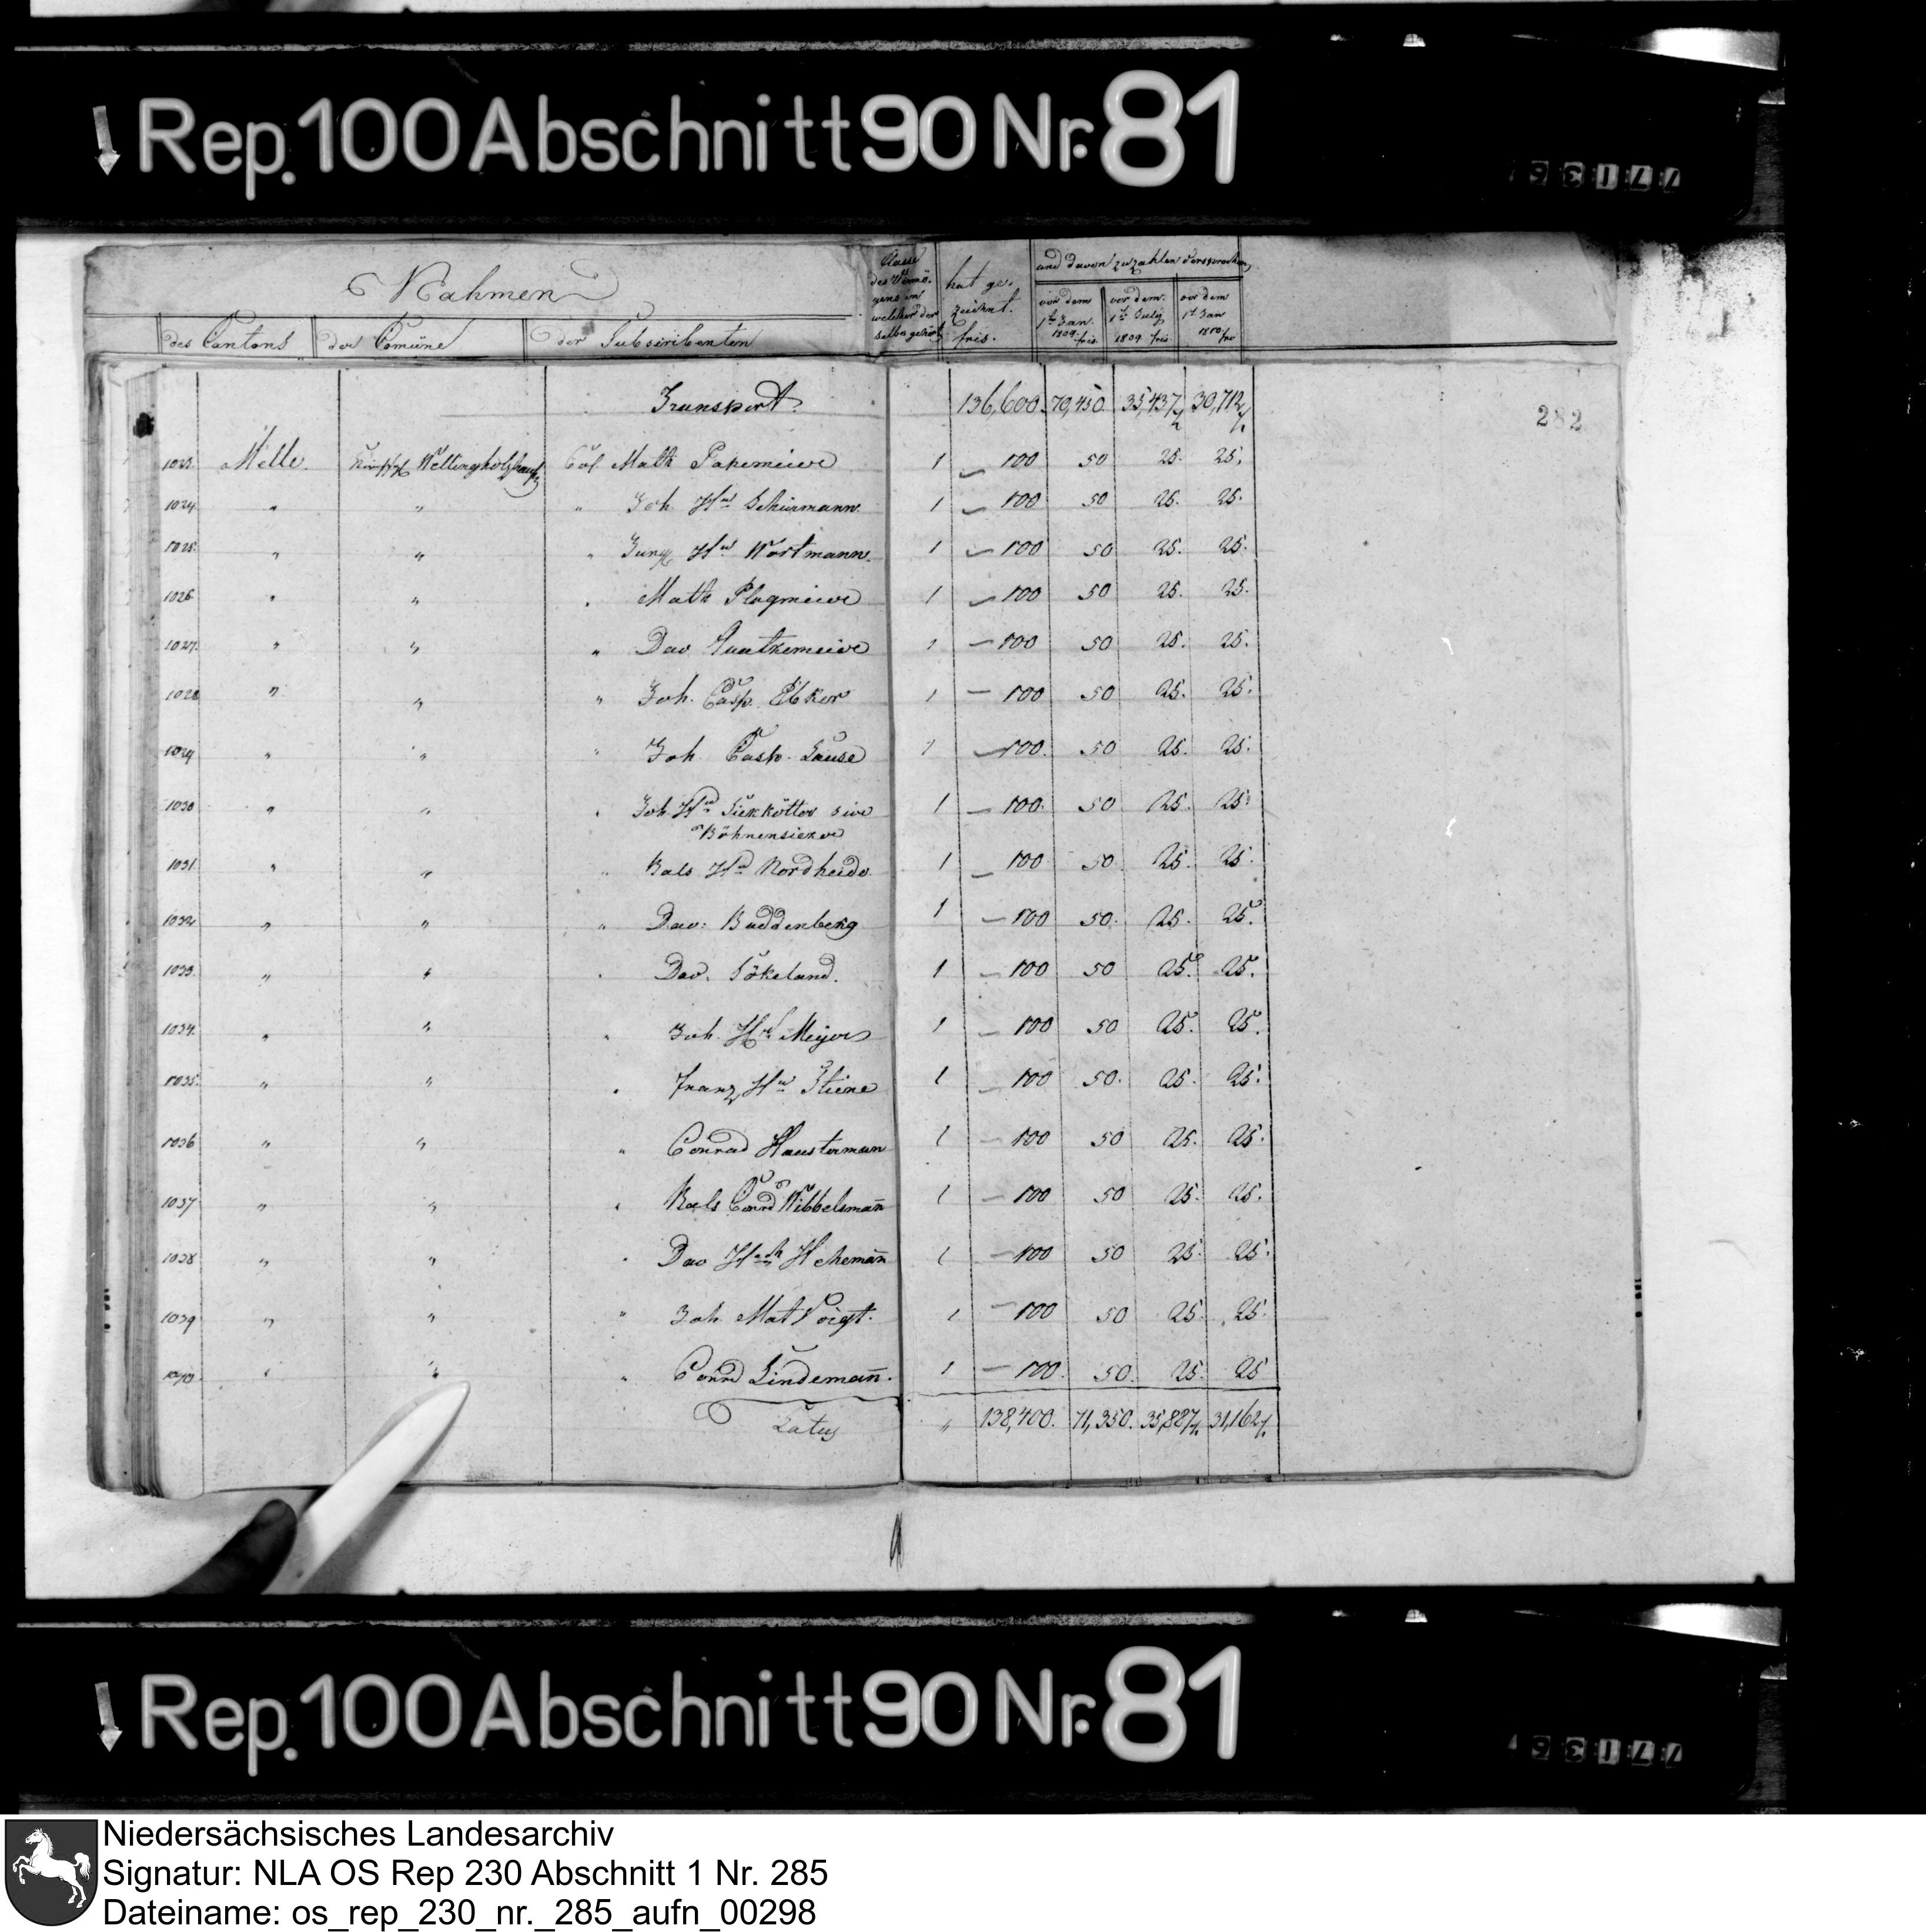 Rep. 100 Abschnitt 90 Nr. 81
Nahmen
des Cantons der Comüne der Subscribenten
Classe des Vermögens in welcher derselbe gehört
hat gezeichnet. frcs.
und davon zu zahlen versprochen
vor dem 1ten Jan. 1809. frcs.
vor dem 1ten July 1809 frcs
vor dem 1t Jan 1810 frc
282
Transport 136,600. 70,450. 35,437½ 30,712½
1023. Melle. Wellingholzhausen Col. Math Papemeier 1 100 50 25. 25.
1024 " " " Joh. Hm Schürmann 1 100 50 25. 25.
1025. " " " Jung Hm Wortmann. 1 100 50 25. 25.
1026 " " " Math Plogmeier 1 100 50 25. 25.
1027. " " " Dav 1 100 50 25. 25.
1028 " " " Joh. Casp. Ebker 1 100 50 25. 25.
1029 " " " Joh. Casp. Lause 1 100. 50 25. 25.
1030 " " " Joh Hm Siekkötter sive 1 100. 50 25. 25.
Böhnensieker
1031. " " " Bals Hm Nordheide 1 100 50 25. 25.
1032 " " " Dav: Buddenberg 1 100 50. 25. 25.
1033. " " " Dav. Sökeland. 1 100 50 25. 25.
1034. " " " Joh. Hm Meyer 1 100 50 25. 25.
1035. " " " Franz Hm Stiene 1 100 50. 25. 25.
1036 " " " Conrad Hausterman 1 100 50 25. 25.
1037 " " " Bals Conrd Wibbelsman̄ 1 100 50 25. 25.
1038 " " " Dav 1 100 50 25. 25.
1039 " " " Joh Mat Voigt. 1 100 50 25. 25.
1040. " " " Conrd Lindeman̄. 1 100. 50. 25. 25
Latus " 138,400. 71,350. 35,887½ 31,162½
Rep. 100 Abschnitt 90 Nr. 81
Niedersächsisches Landesarchiv
Signatur: NLA OS Rep 230 Abschnitt 1 Nr. 285
Dateiname: os_rep_230_nr._285_aufn_00298